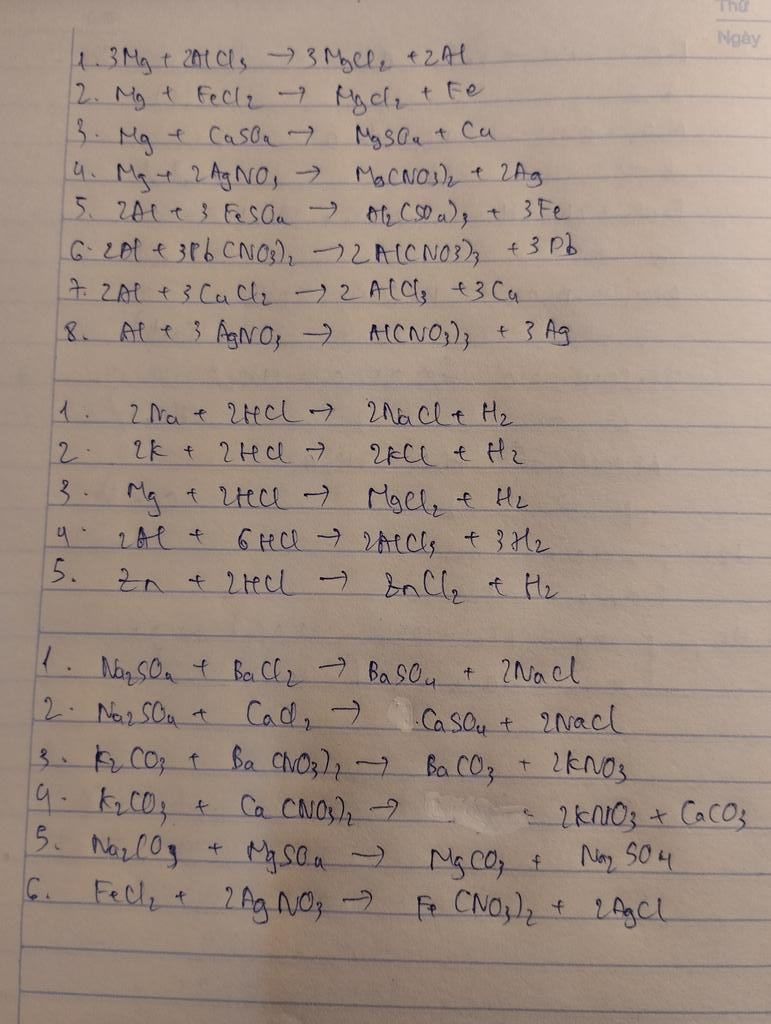 Thứ
Ngày
1. 3Mg + 2AlCl3 → 3MgCl2 + 2Al
2. Mg + FeCl2 → MgCl2 + Fe
3. Mg + CuSO4 → MgSO4 + Cu
4. Mg + 2AgNO3 → Mg(NO3)2 + 2Ag
5. 2Al + 3FeSO4 → Al2(SO4)3 + 3Fe
6. 2Al + 3Pb(NO3)2 → 2Al(NO3)3 + 3Pb
7. 2Al + 3CuCl2 → 2AlCl3 + 3Cu
8. Al + 3AgNO3 → Al(NO3)3 + 3Ag
1. 2Na + 2HCl → 2NaCl + H2
2. 2K + 2HCl → 2KCl + H2
3. Mg + 2HCl → MgCl2 + H2
4. 2Al + 6HCl → 2AlCl3 + 3H2
5. Zn + 2HCl → ZnCl2 + H2
1. Na2SO4 + BaCl2 → BaSO4 + 2NaCl
2. Na2SO4 + CaCl2 → CaSO4 + 2NaCl
3. K2CO3 + Ba(NO3)2 → BaCO3 + 2KNO3
4. K2CO3 + Ca(NO3)2 → 2KNO3 + CaCO3
5. Na2CO3 + MgSO4 → MgCO3 + Na2SO4
6. FeCl2 + 2AgNO3 → Fe(NO3)2 + 2AgCl